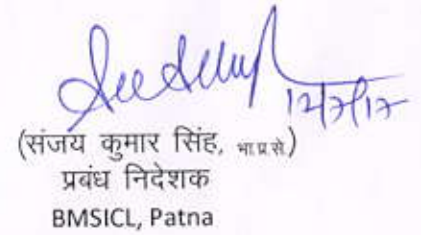 12/7/17
(संजय कुमार सिंह, भा.प्र.से.)
प्रबंध निदेशक
BMSICL, Patna